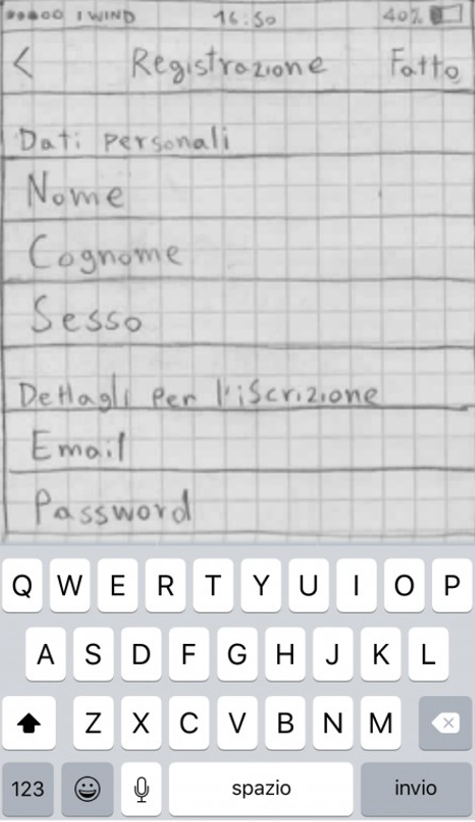 1 WIND 16:50 40%
< Registrazione Fatto
Dati personali
Nome
Cognome
Sesso
Dettagli per l'iscrizione
Email
Password
Q W E R T Y U I O P
A S D F G H J K L
Z X C V B N M
123 spazio invio